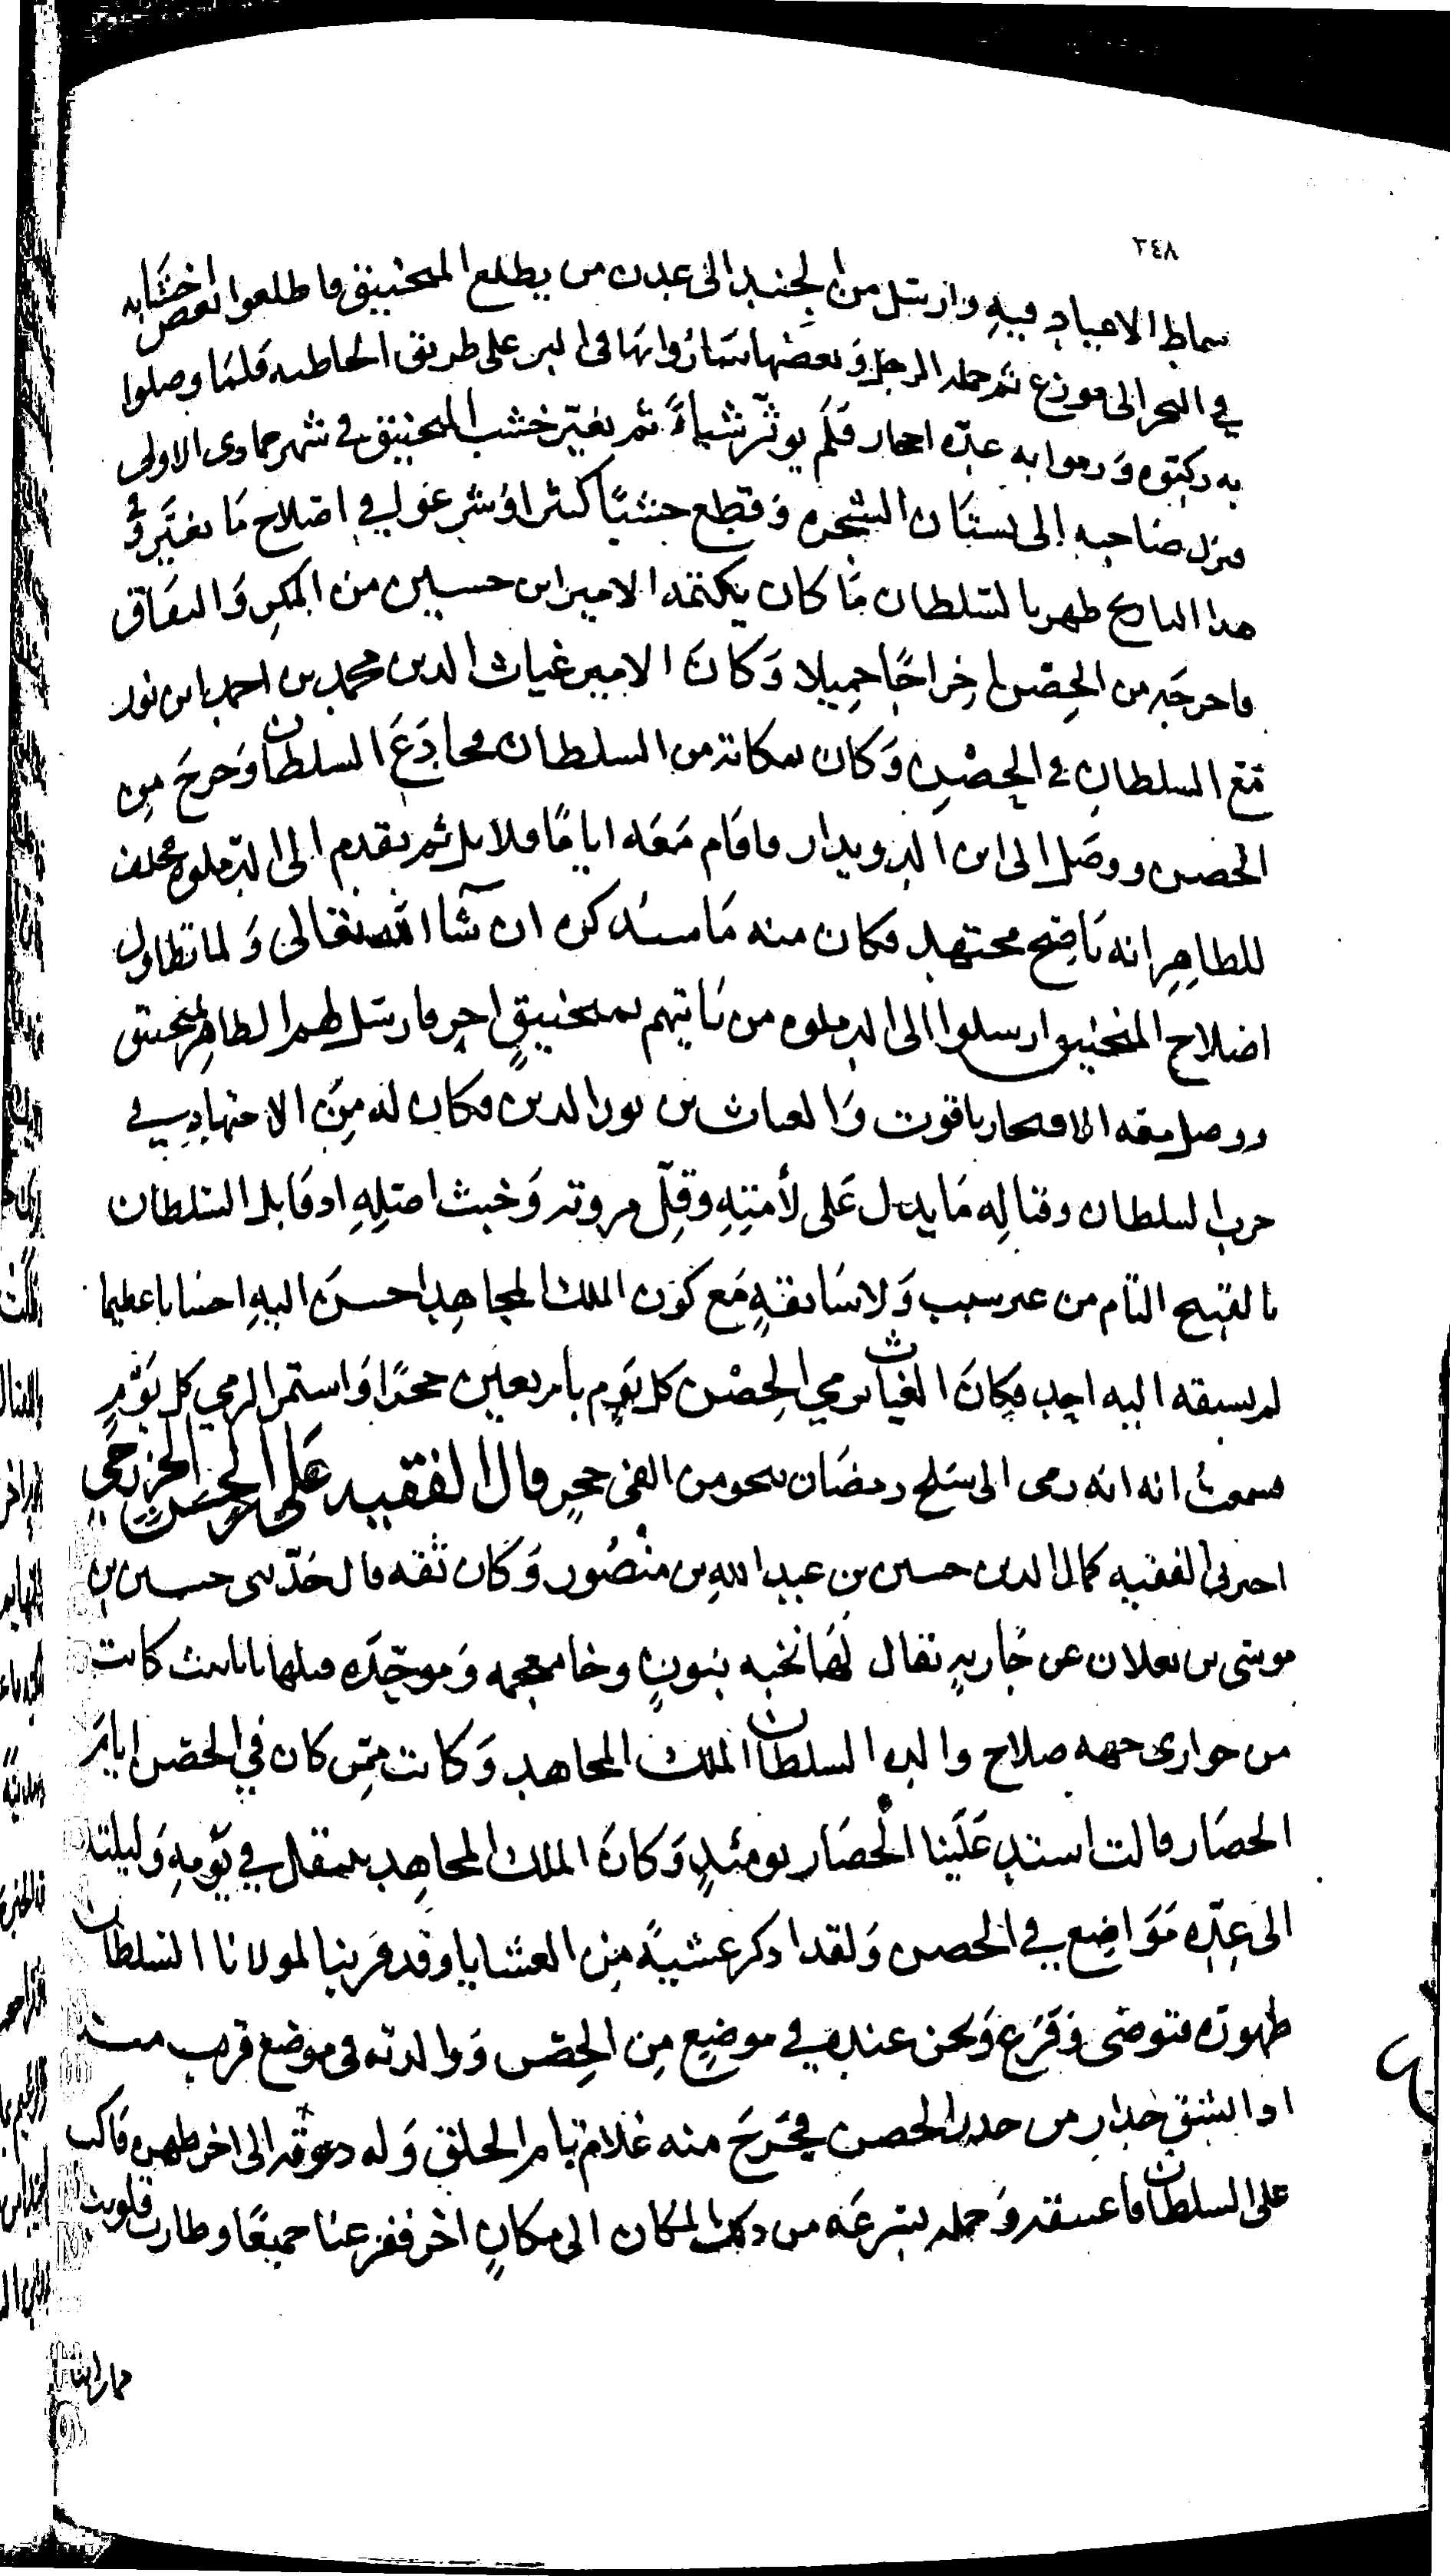 ٣٤٨
سماط الاعياد فيه وارسل من الجند الى عدن من يطلع المنجنيق فاطلعوا بعض اخشابه
في البحر الى موزع ثم حمله الرجل وبعضها ساروا بها في البر على طريق الحاطبه فلما وصلوا
به ركبوه ورموا به عدة احجار فلم يوثر شياً ثم تغير خشب المنجنيق في شهر جمادى الاولى
فنزل صاحبه الى بستان الشجره وقطع خشبًا كثيرا وشرعوا في اصلاح ما تغير وفي
هذا التاريخ ظهر بالسلطان ما كان يكتمه الامير ابن حسين من المكر والنفاق
فاخرجه من الحصن اخراجًا جميلا وكان الامير غياث الدين محمد بن احمد ابن نور
مع السلطان في الحصن وكان بمكانة من السلطان فخادع السلطان وخرج من
الحصن ووصل الى ابن الدويدار فاقام معه ايامًا قلايل ثم تقدم الى الدملوه فحلف
للظاهر انه ناصح مجتهد فكان منه ما سنذكره ان شا الله تعالى ولما تطاول
اصلاح المنجنيق ارسلوا الى الدملوه من ياتيهم بمنجنيق اخر فارسل لهم الظاهر بمنجنيق
ووصل معه الافتخار ياقوت والغياث بن نور الدين فكان له من الاجتهاد في
حرب السلطان وقتاله ما يدل على لأمته وقل مروته وخبث اصله اذ قابل السلطان
بالقبيح التام من غير سبب ولا سابقة مع كون الملك المجاهد احسن اليه احسانا عظيما
لم يسبقه اليه احد فكان الغياث يرمي الحصن كل يوم باربعين حجرًا واستمر الرمي كل يوم
فسمعت انه انه رمى الى سلخ رمضان بنحو من الفي حجر قال الفقيه علي بن الحسن الخزرجي
اخبرني الفقيه كمال الدين حسين بن عبد الله بن منصور وكان ثقه قال حدثني حسين بن
موسى بن بعلان عن جارية تقال لها نخبه بنون وخا معجمه وموحده قبلها تانيث كانت
من جواري جهه صلاح والده السلطان الملك المجاهد وكانت ممن كان في الحصن ايام
الحصار قالت استد علينا الحصار يومئذ وكان الملك المجاهد ينتقل في يومه وليلته
الى عدة مواضع في الحصن ولقد اذكر عشيةً من العشايا وقد قربنا لمولانا السلطان
طهوره فتوضى وفرغ ونحن عنده في موضع من الحصن ووالدته في موضع قريب منه
اذ انشق جدار من جدر الحصن فخرج منه غلام تام الخلق وله دعوقه الى اخر ظهره فاكب
على السلطان فاعتنقه وحمله بسرعه من ذلك المكان الى مكان اخر ففزعنا جميعًا وطارت قلوبنا
فما راينا